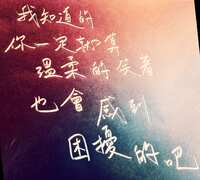 我知道的
你一定就算
溫柔的笑着
也會感到
困擾的吧